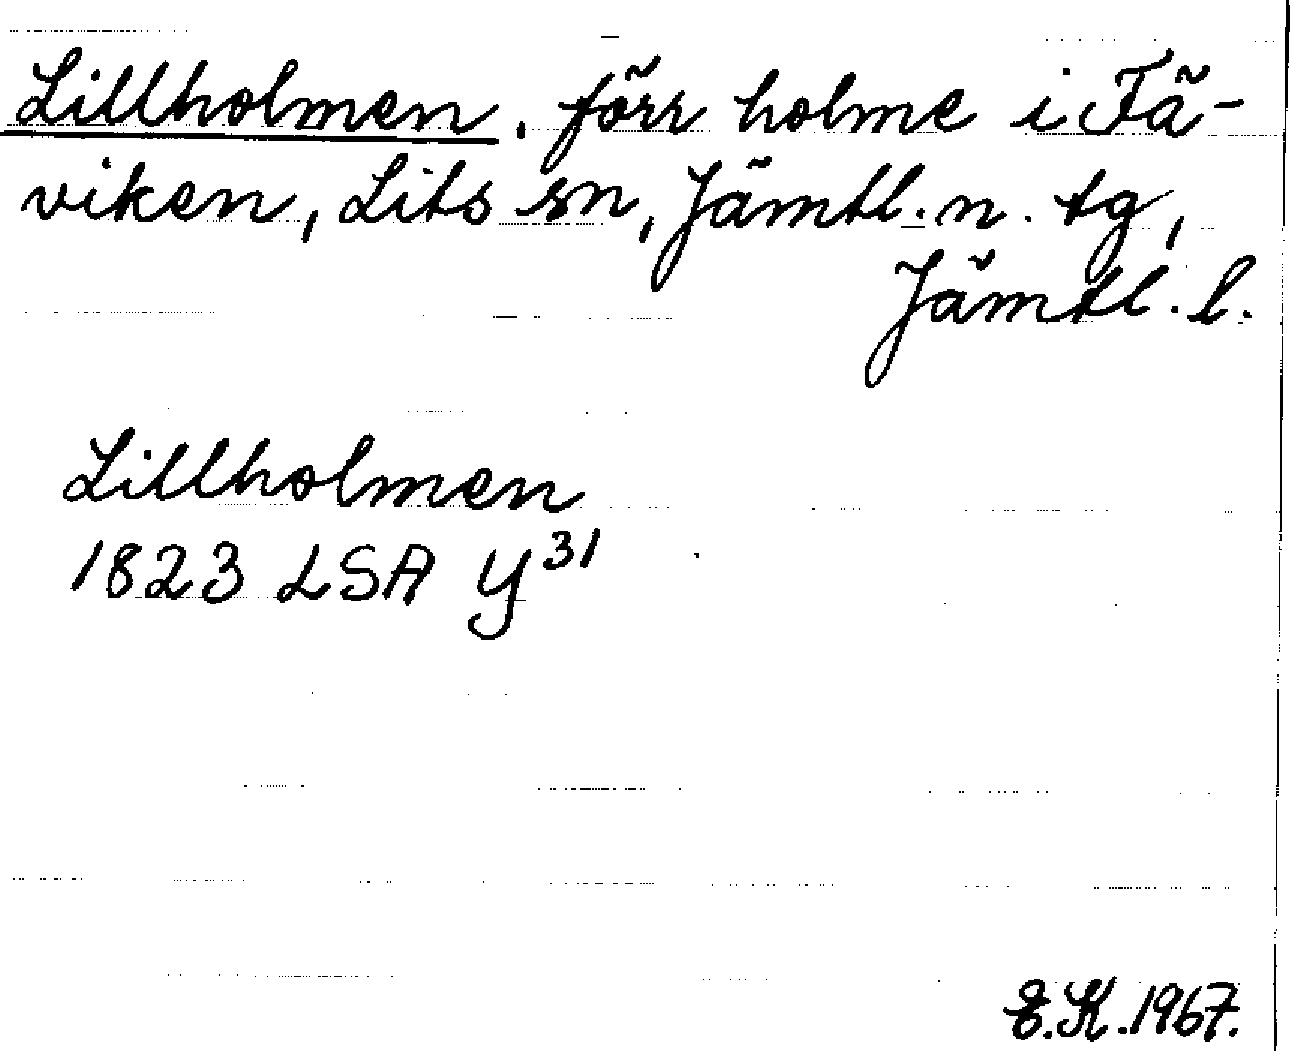 Lillholmen, förr holme i Fä-
viken, Lits sn, Jämtl. n. tg,
Jämtl. l.
Lillholmen
1823 LSA Y³¹
E.K.1967.